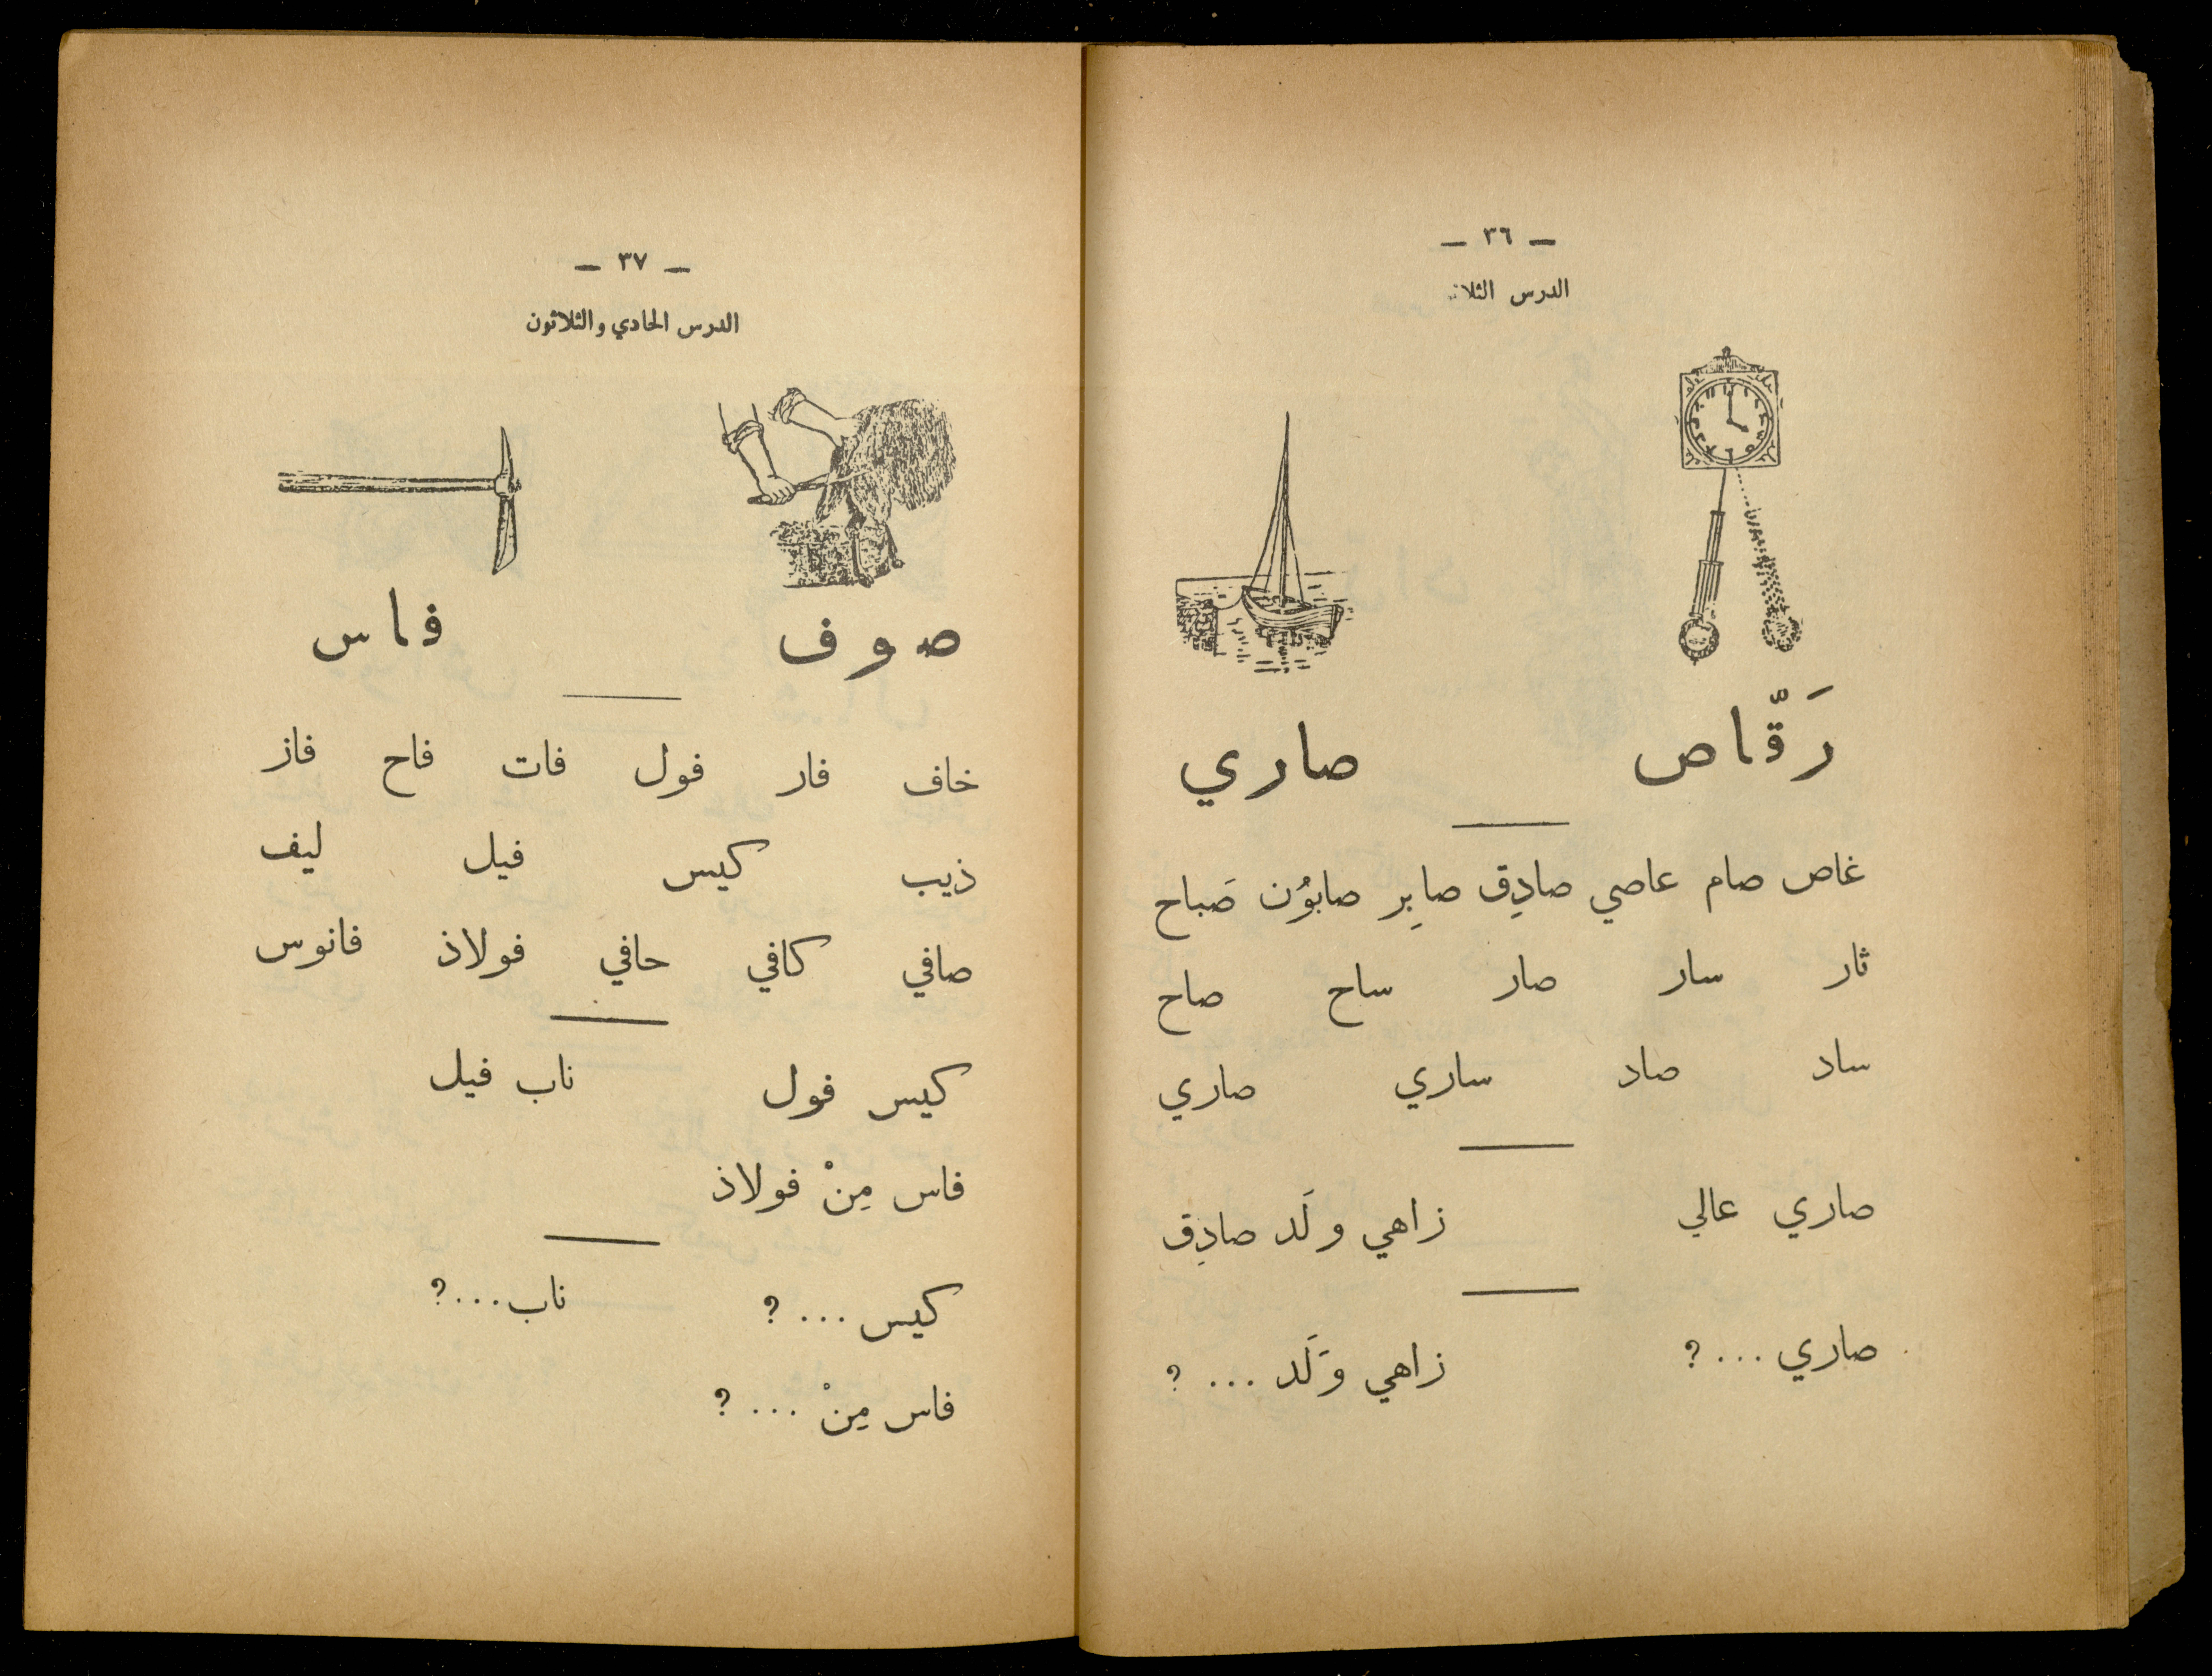 — ٣٦ —
الدرس
رَقّاص صاري
غاص صام عاصي صادِق صابِر صابوُن صَباح
ثار سار صار ساح صاح
ساد صاد ساري صاري
صاري عالي زاهي ولَد صادِق
صاري ...؟ زاهي وَلَد ...؟
— ٣٧ —
الدرس الحادي والثلاثون
صوف فاس
خاف فار فول فات فاح فاز
ذيب كيس فيل ليف
صافي كافي حافي فولاذ فانوس
كيس فول ناب فيل
فاس مِنْ فولاذ
كيس ...؟ ناب...؟
فاس مِنْ ...؟